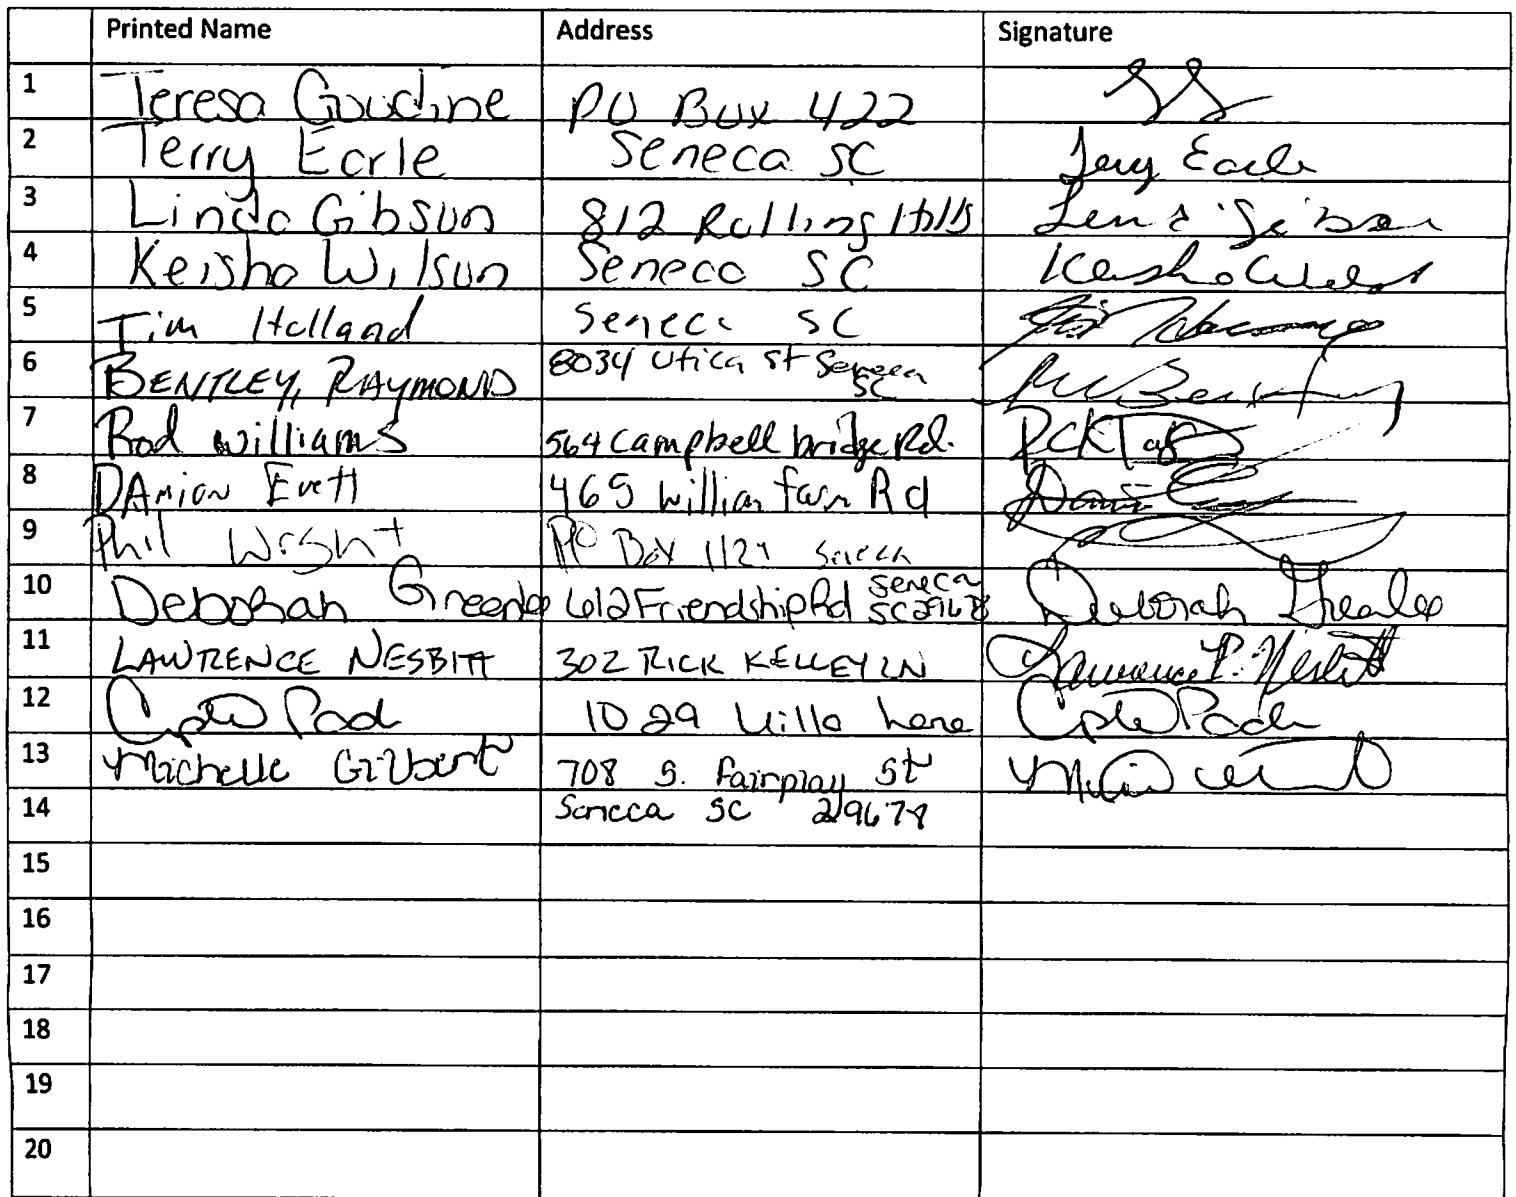 Printed Name Address Signature
1 Teresa Goudine PO Box 422
2 Terry Earle Seneca SC Terry Earle
3 Linda Gibson 812 Rolling Hills Linda Gibson
4 Keisha Wilson Seneca SC Keisha
5 Tim Holland Seneca SC
6 BENTLEY, RAYMOND 8034 Utica St Seneca SC
7 Rod Williams 564 Campbell bridge Rd.
8 DAmion Evett 465 William Farm Rd
9 Phil Wright PO Box 1124 Seneca
10 Deborah Greenlee 612 Friendship Rd Seneca SC 29678 Deborah Greenlee
11 LAWRENCE NESBITT 302 RICK KELLEY LN Lawrence P. Nesbitt
12 1029 Villa Lane
13 Michelle Gilbert 708 S. Fairplay St
14 Seneca SC 29678
15
16
17
18
19
20